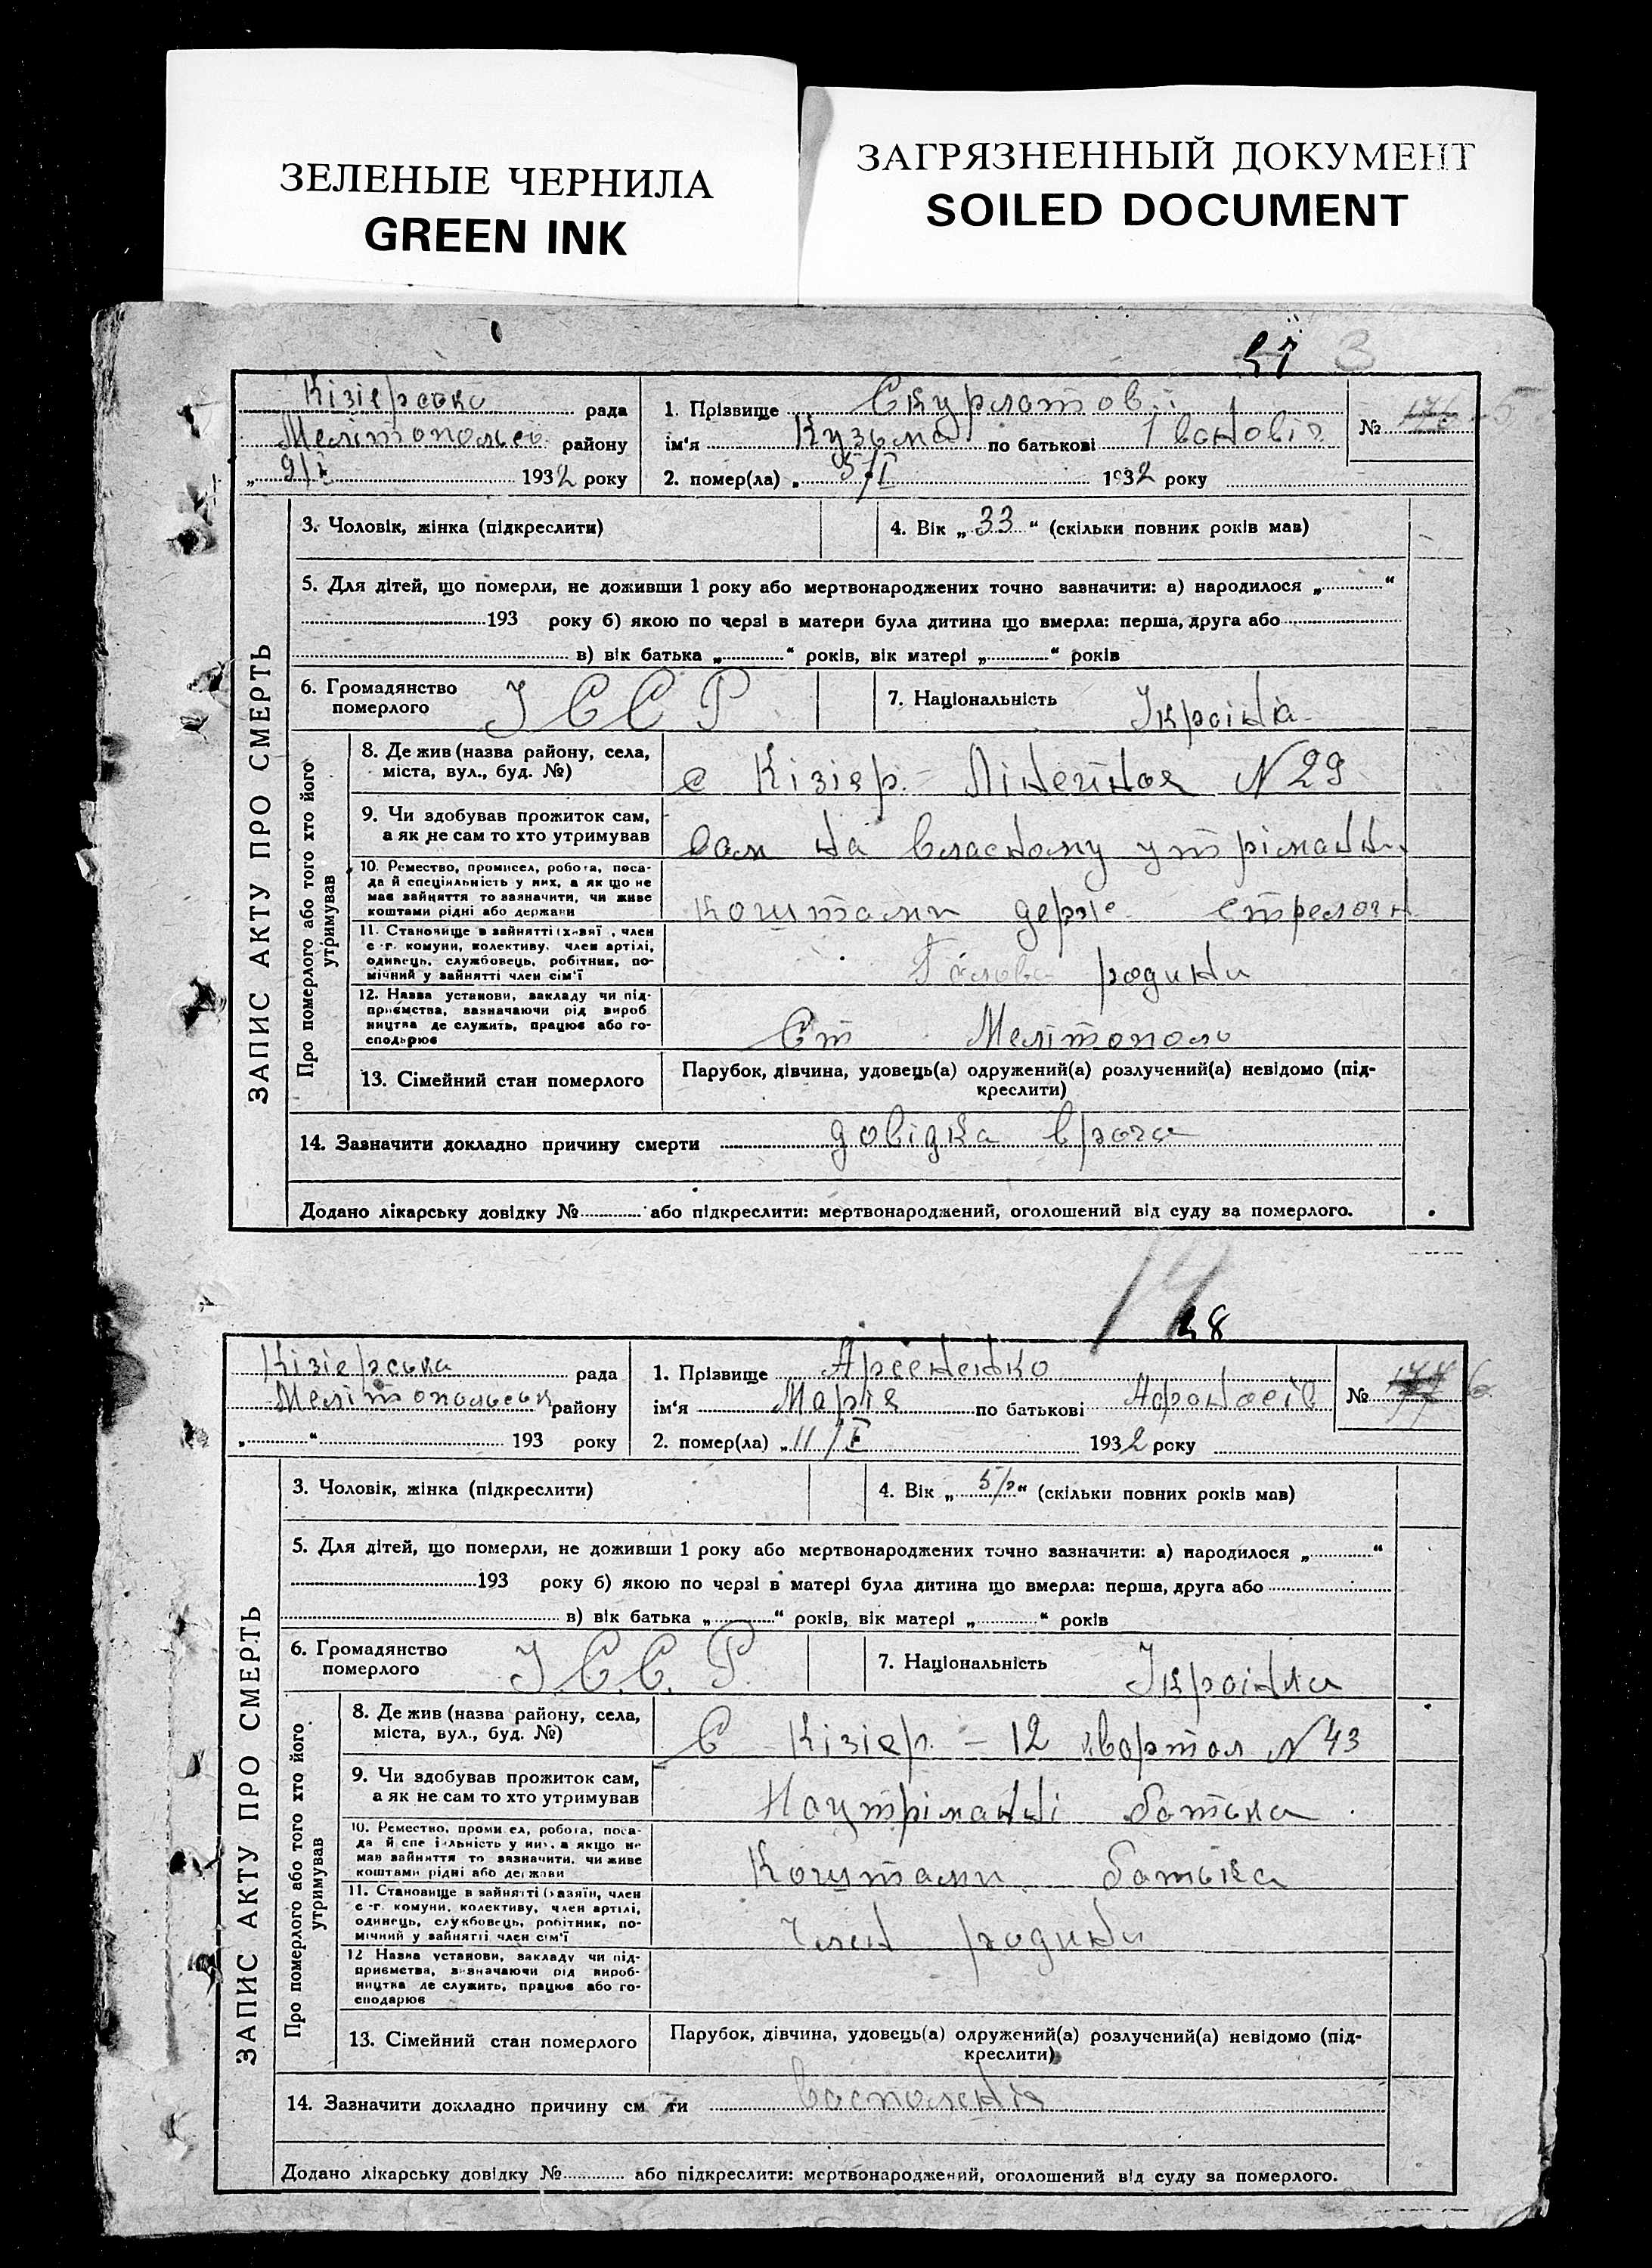 ЗЕЛЕНЫЕ ЧЕРНИЛА
GREEN INK
ЗАГРЯЗНЕННЫЙ ДОКУМЕНТ
SOILED DOCUMENT
3
Кізіерська рада
Мелітопольсь району
„ 9/I 1932 року
1. Прізвище Скурлатов
ім'я Кузьма по батькові Івановіч
2. помер(ла) „ 5/I 1932 року
№ 5
ЗАПИС АКТУ ПРО СМЕРТЬ
3. Чоловік, жінка (підкреслити)
4. Вік „ 33 “ (скільки повних років мав)
5. Для дітей, що померли, не доживши 1 року або мертвонароджених точно зазначити: а) народилося „ “
193 року б) якою по черзі в матери була дитина що вмерла: перша, друга або
в) вік батька „ “ років, вік матері „ “ років
6. Громадянство
померлого
УССР
7. Національність Україна
Про померлого або того хто його
утримував
8. Де жив (назва району, села,
міста, вул., буд. №)
с Кізіер. - Лінейная N 29
9. Чи здобував прожиток сам,
а як не сам то хто утримував
Сам на власному утріманни
10. Ремество, промисел, робота, поса-
да й спеціяльність у них, а як що не
має зайняття то зазначити, чи живе
коштами рідні або держави
Коштами держ
11. Становище в зайнятті (хазяї , член
с -г. комуни, колективу, член артілі,
одинець, службовець, робітник, по-
мічний у зайнятті член сім'ї
Голова родини
12. Назва установи, закладу чи під-
приємства, зазначаючи рід вироб
ництва де служить, працює або го-
сподарює
Ст Мелітополь
13. Сімейний стан померлого
Парубок, дівчина, удовець(а) одружений(а) розлучений(а) невідомо (під-
креслити)
14. Зазначити докладно причину смерти довідка врача
Додано лікарську довідку № або підкреслити: мертвонароджений, оголошений від суду за померлого.
14
Кізіерська рада
Мелітопольськ району
„ “ 193 року
1. Прізвище Арсененко
ім'я Марія по батькові Афонасів
2. помер(ла) „ 11/I 1932 року
№ 6
ЗАПИС АКТУ ПРО СМЕРТЬ
3. Чоловік, жінка (підкреслити)
4. Вік „ 5/р “ (скільки повних років мав)
5. Для дітей, що померли, не доживши 1 року або мертвонароджених точно зазначити: а) народилося „ “
193 року б) якою по черзі в матері була дитина що вмерла: перша, друга або
в) вік батька „ “ років, вік матері „ “ років
6. Громадянство
померлого
У.С.С.Р.
7. Національність Українка
Про померлого або того хто його
утримував
8. Де жив (назва району, села,
міста, вул., буд. №)
С Кізіер. - 12 квортал N 43
9. Чи здобував прожиток сам,
а як не сам то хто утримував
Наутріманні батька
10. Ремество, промисел, робота, поса-
да й спеціяльність у них, а якщо не
мав зайняття то зазначити, чи живе
коштами рідні або держави
Коштами батька
11. Становище в зайнятті (хазяїн, член
с -г. комуни, колективу, член артілі,
одинець, службовець, робітник, по-
мічний у зайнятті член сім'ї
Член родини
12 Назва установи, закладу чи під-
приємства, зазначаючи рід вироб-
ництва де служить, працює або го-
сподарює
13. Сімейний стан померлого
Парубок, дівчина, удовець(а) одружений(а) розлучений(а) невідомо (під-
креслити)
14. Зазначити докладно причину см ти воспаленія
Додано лікарську довідку № або підкреслити: мертвонароджений, оголошений від суду за померлого.